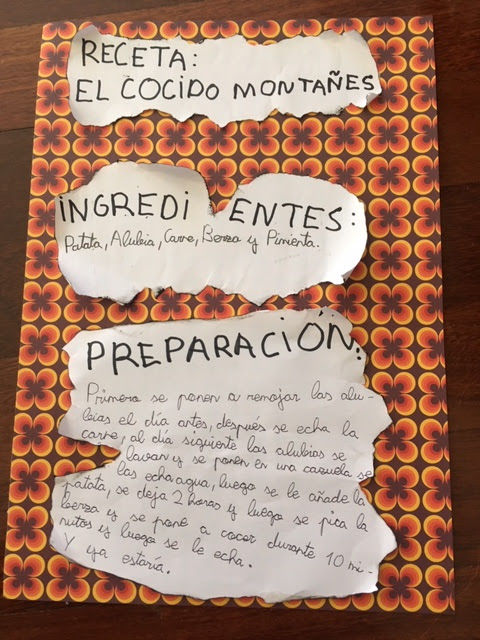 RECETA:
EL COCIDO MONTAÑES
INGREDIENTES:
Patata, Alubia, Carne, Berza y Pimienta.
PREPARACIÓN:
Primera se ponen a remojar las alu-
bias el día antes, después se echa la
carne, al día siguiente las alubias se
lavan y se ponen en una cazuela se
las echa agua, luego se le añade la
patata, se deja 2 horas y luego se pica la
berza y se pone a cocer durante 10 mi-
nutos y luego se le echa.
Y ya estaría.